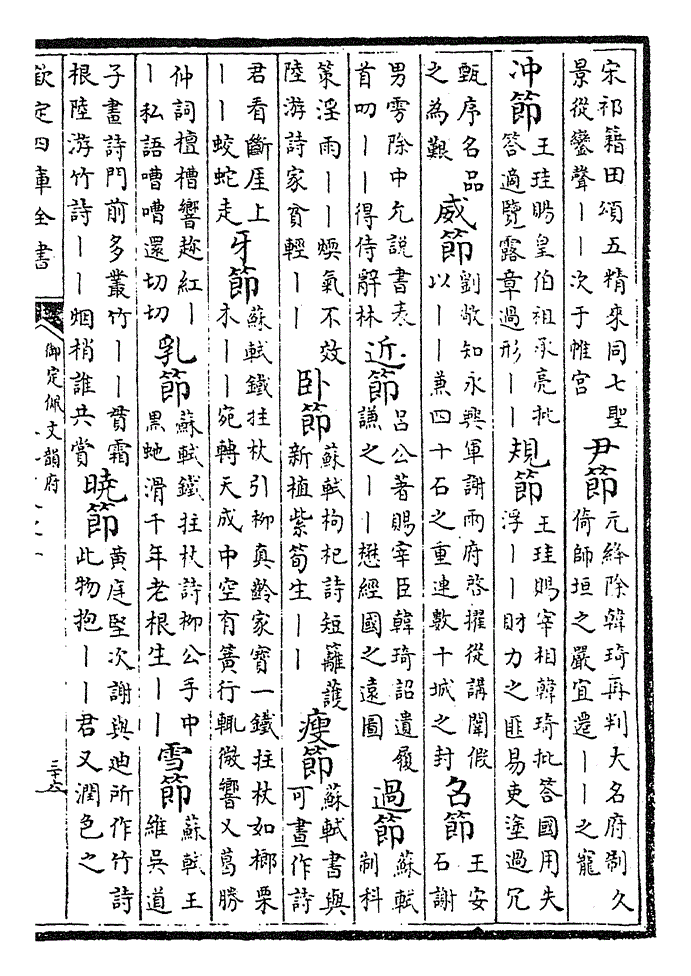 宋祁籍田頌五精來同七聖
景從鑾聲丨丨次于帷宮
尹節
元絳除韓琦再判大名府制久
倚師垣之嚴宜還丨丨之寵
冲節
王珪賜皇伯祖承亮批
答適覽露章過形丨丨
規節
王珪賜宰相韓琦批荅國用失
浮丨丨財力之匪易吏塗過冗
甄序名品
之為艱
威節
劉敞知永興軍謝兩府啓擢從講闈假
以丨丨兼四十石之重連數十城之封
名節
王安
石謝
男雱除中允說書表
首叨丨丨得侍辭林
近節
呂公著賜宰臣韓琦詔遺履
謙之丨丨懋經國之遠圖
過節
蘇軾
制科
策淫雨丨丨燠氣不效
陸游詩家貧輕丨丨
卧節
蘇軾枸杞詩短籬護
新植紫筍生丨丨
瘦節
蘇軾書與
可畫作詩
君看斷厓上
丨丨蛟蛇走
牙節
蘇軾鐵拄杖引柳真齡家寶一鐵拄杖如楖栗
木丨丨宛轉天成中空有簧行輒微響又葛勝
仲詞檀槽響趂紅丨
丨私語嘈嘈還切切
乳節
蘇軾鐵拄杖詩柳公手中
黑虵滑千年老根生丨丨
雪節
蘇軾王
維吳道
子畫詩門前多叢竹丨丨貫霜
根陸游竹詩丨丨烟梢誰共賞
曉節
黃庭堅次謝與迪所作竹詩
此物抱丨丨君又潤色之
欽定四庫全書
御定佩文韻府
三十六